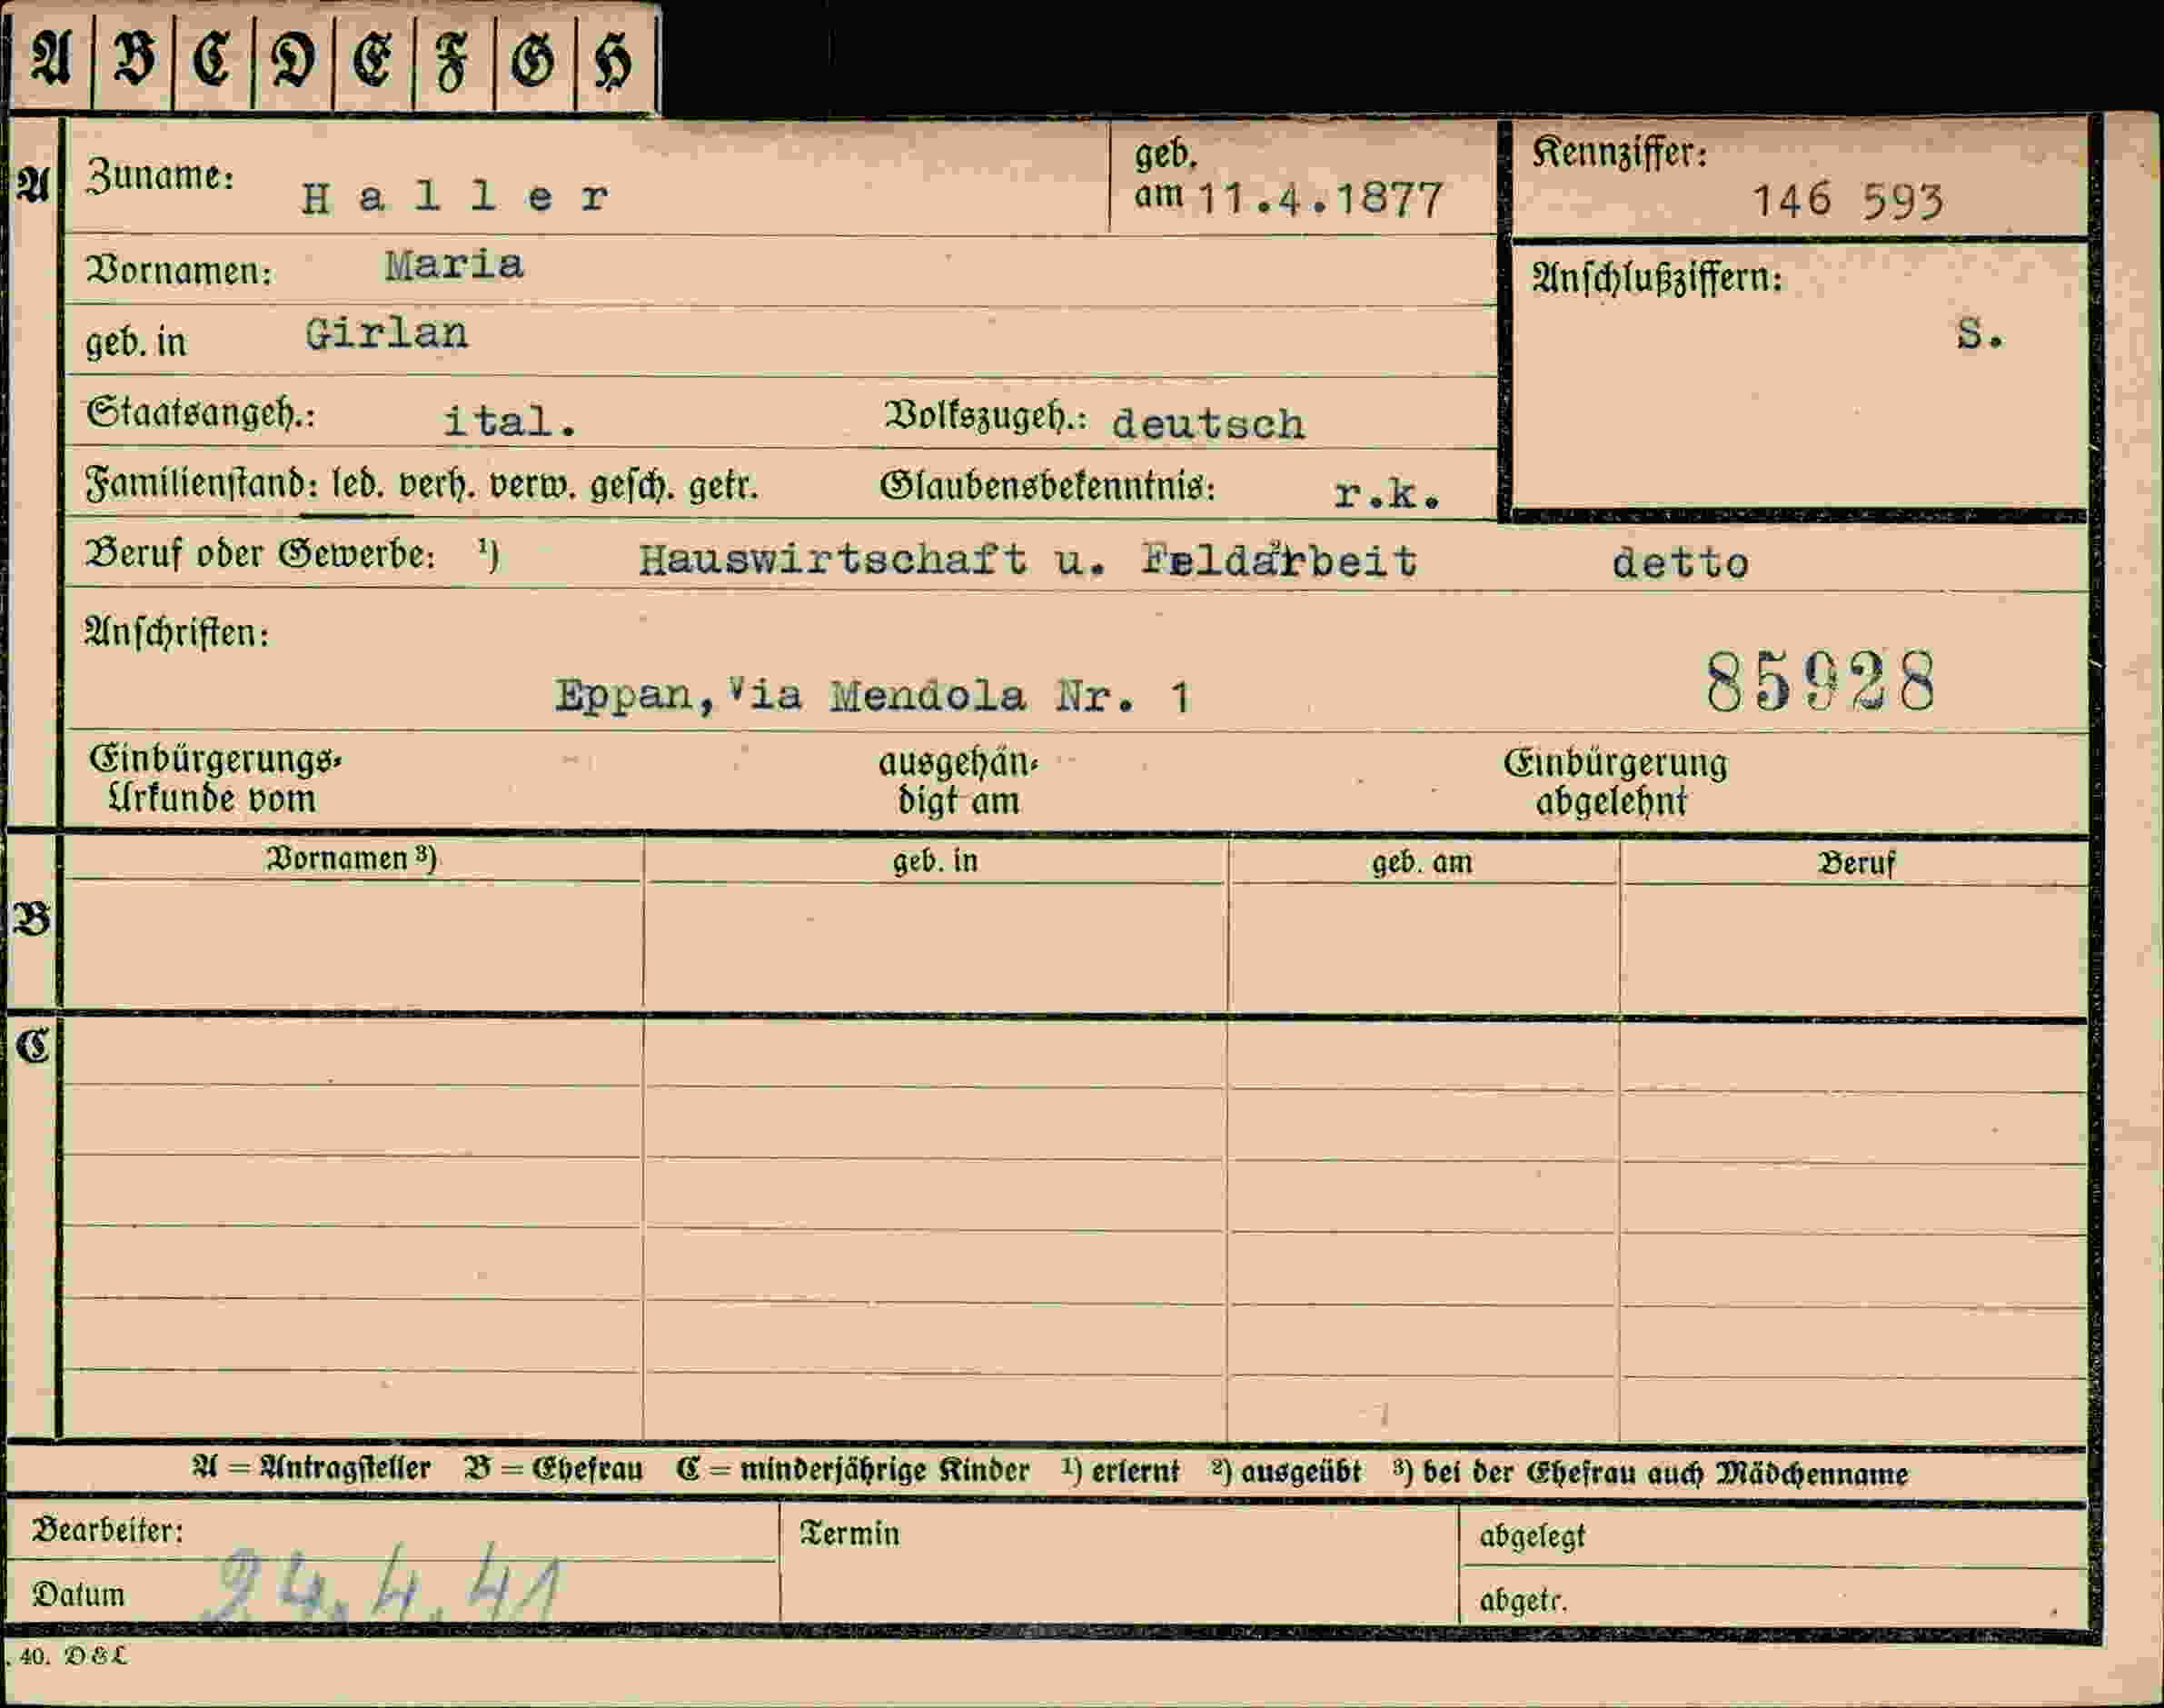 A B C D E F G H
A
Zuname: Haller
geb. am 11.4.1877
Kennziffer: 146 593
Vornamen: Maria
Anschlußziffern:
S.
geb. in Girlan
Staatsangeh.: ital. Volkszugeh.: deutsch
Familienstand: led. verh. verw. gesch. getr. Glaubensbekenntnis: r.k.
Beruf oder Gewerbe: ¹) Hauswirtschaft u. Feldarbeit detto
Anschriften:
Eppan, Via Mendola Nr. 1 85928
Einbürgerungs- ausgehän- Einbürgerung
Urkunde vom digt am abgelehnt
B
Vornamen ³) geb. in geb. am Beruf
C
A = Antragsteller B = Ehefrau C = minderjährige Kinder ¹) erlernt ²) ausgeübt ³) bei der Ehefrau auch Mädchenname
Bearbeiter: Termin abgelegt
Datum 24.4.41 abgetr.
. 40. D & L